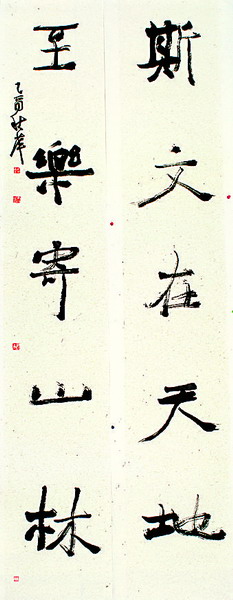 斯文在天地
至樂寄山林
乙酉秋岸